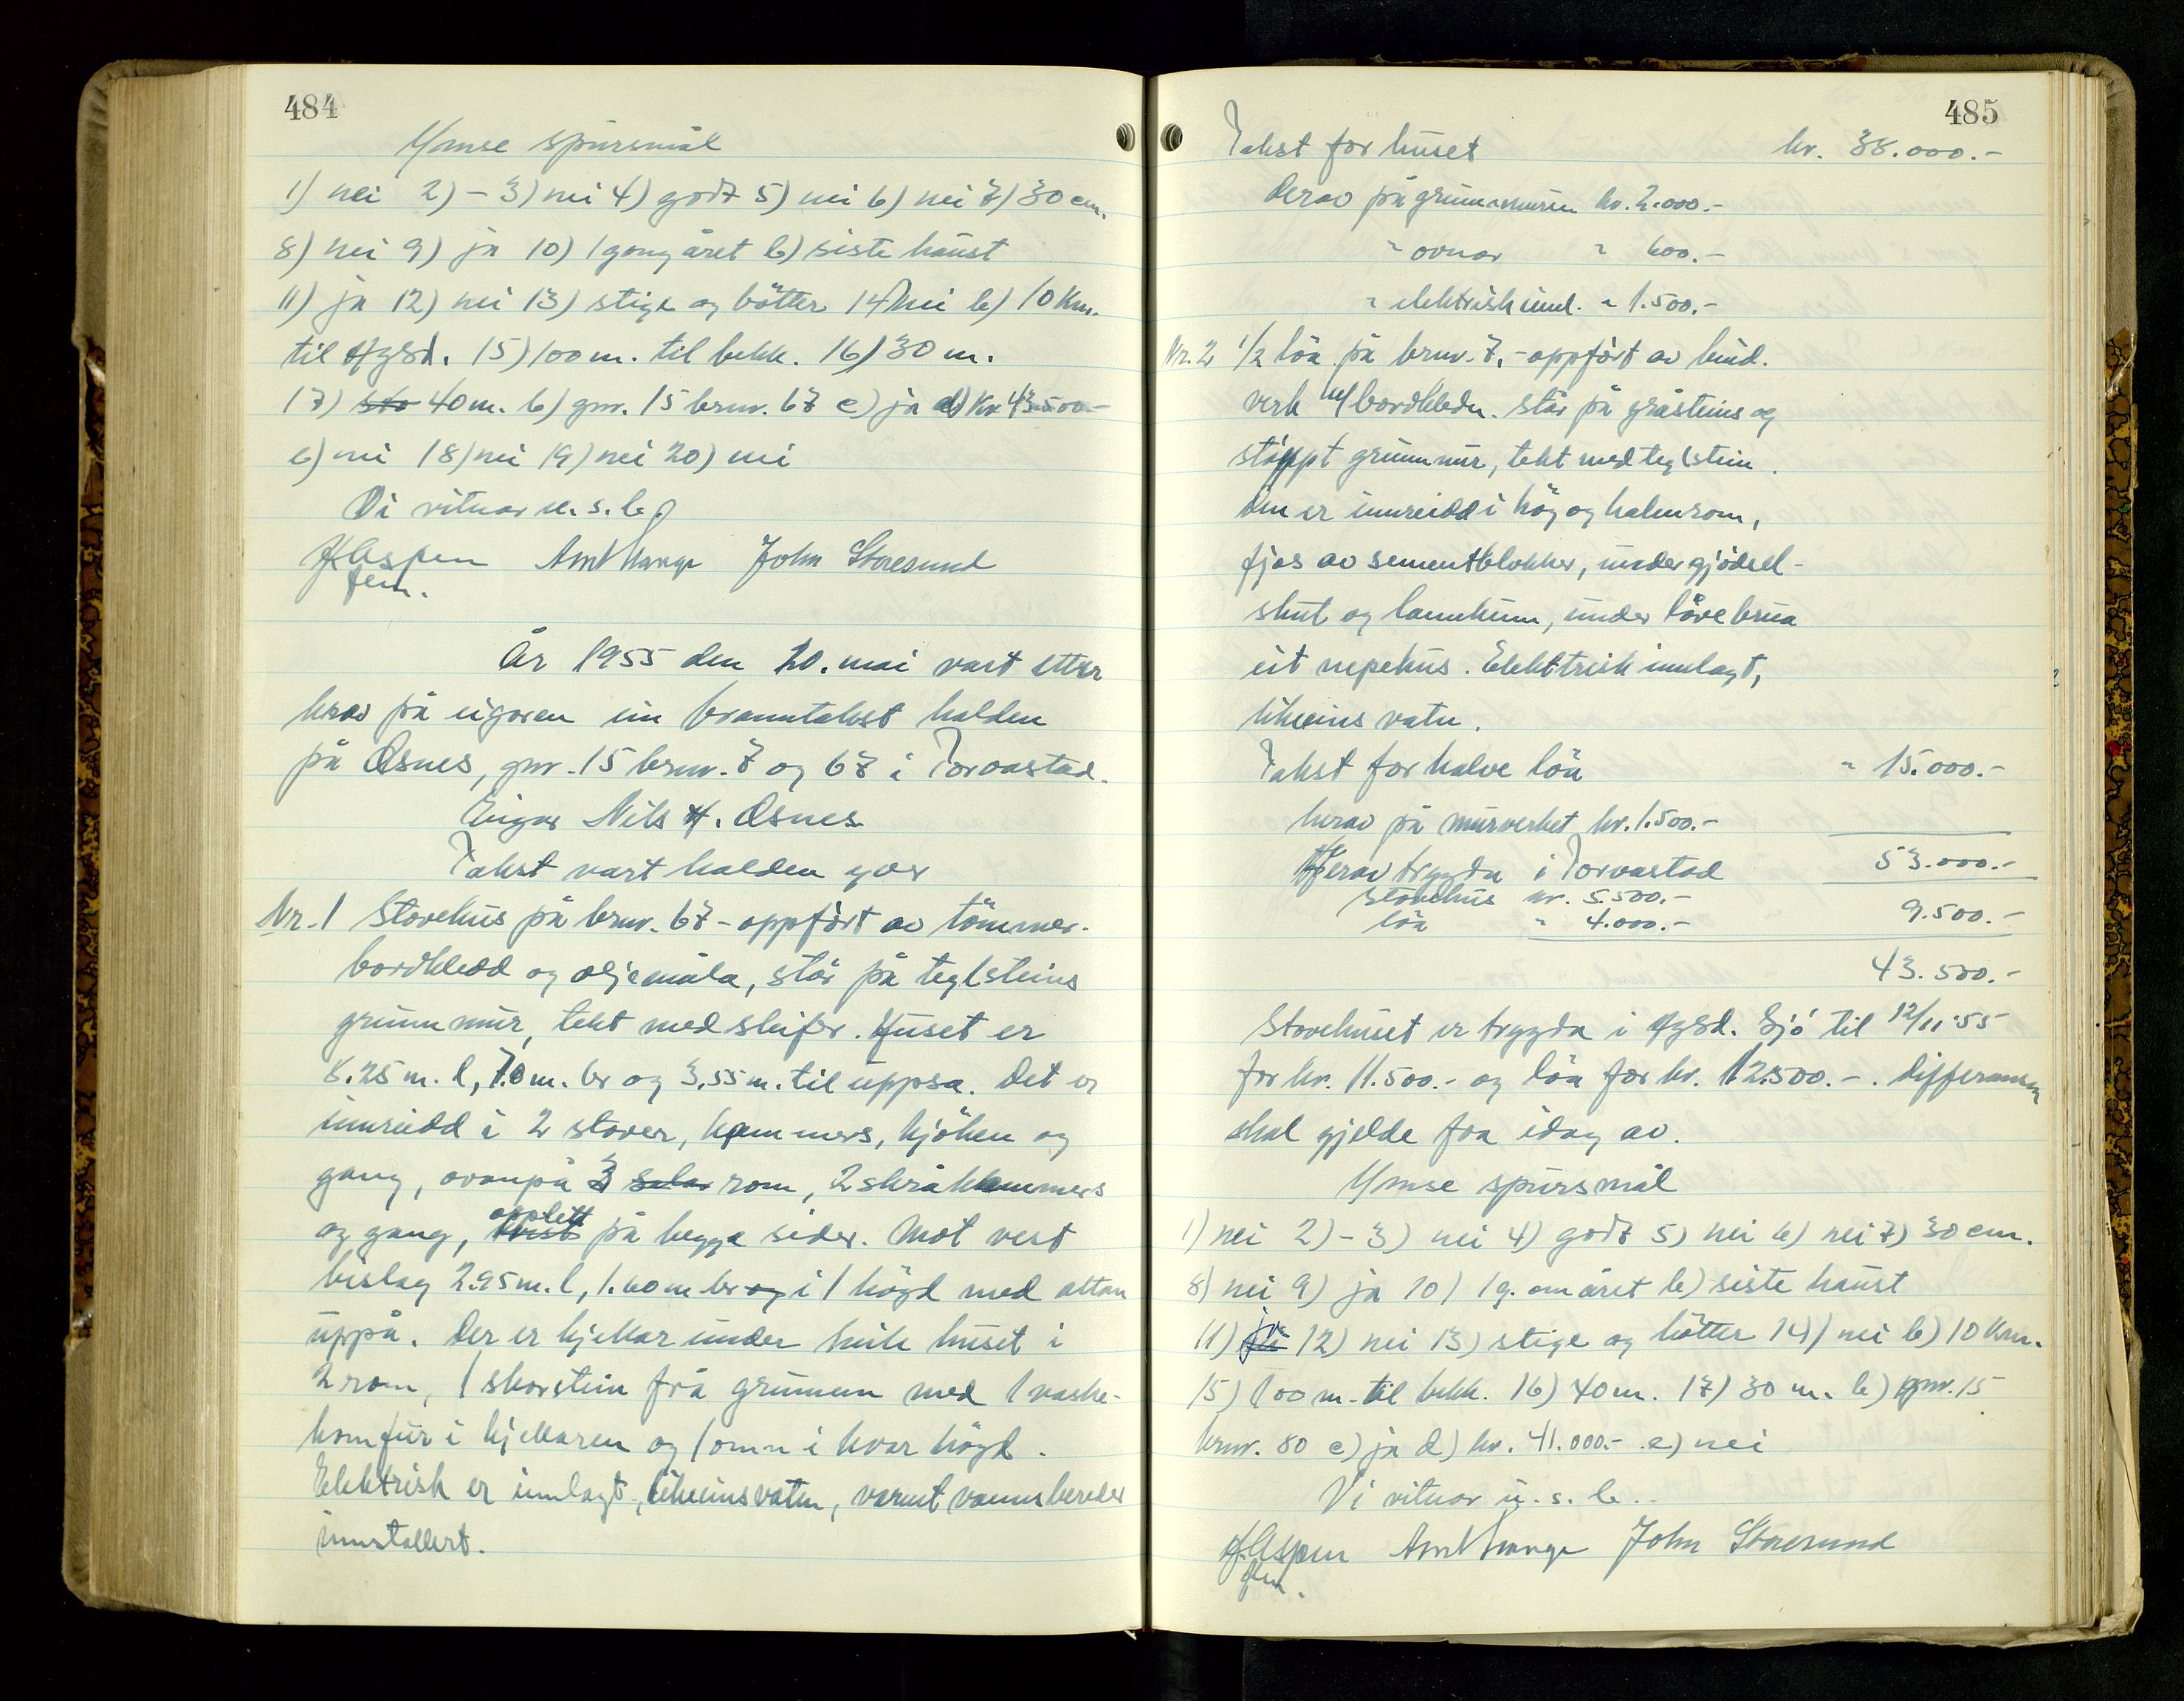 484
Ymse spursmål
1) nei 2) - 3) nei 4) godt 5) nei 6) nei 7) 30 cm.
8) nei 9) ja 10) 1 gong året b) siste haust
11) ja 12) nei 13) stige og bötter 14) nei b) 10 km.
til Hgsd. 15) 100 m. til bekk. 16) 30 m.
17) 40 m. b) gnr. 15 brnr. 67 c) ja d) kr 43500.-
e) nei 18) nei 19) nei 20) nei
Vi vitnar u. s. b.
H Aspen John Storesund
fem.
År 1955 den 20. mai vart etter
krav på eigaren ein branntakst halden
på Osnes, gnr. 15 brnr. 7 og 67 i Torvastad.
Eigar Nils H. Osnes
Takst vart halden yver
Nr. 1 Stovehus på brnr. 67 - oppfört av tömmer.
bordkledd og oljemåla, står på teglsteins
grunnmur, tekt med skifer. Huset er
8.25 m. l, 7.0 m. br og 3,55 m. til uppsa. Det er
innreidd i 2 stover, kammers, kjöken og
gang, ovanpå 3 salar rom, 2 skråkammers
og gang, opplett på begge sider. Mot vest
bislag 2.95 m. l, 1.60 m br og i 1 högd med altan
uppå. Der er kjellar under heile huset i
2 rom, 1 skorstein frå grunnen med 1 vaske-
komfur i kjellaren og 1 omn i kvar högd.
Elektrisk er innlagt, likeins vatn, varmt vannsbereder
innstallert.
485
Takst for huset kr. 38.000.-
Derav på grunnmuren kr. 2.000.-
" ovnar " 600.-
" elektrisk innl. " 1.500.-
Nr. 2 1/2 löa på brnr. 7. - oppfört av bind.
verk m/bordkledn. står på gråsteins og
stöppt grunnmur, tekt med teglstein.
Den er innreidd i höy og halmrom,
fjøs av sementblokker, under gjödsel-
skut og lannkum, under låvebrua
eit nepehus. Elektrisk innlagt,
likeins vatn.
Takst for halve löa " 15.000.-
herav på murverket kr. 1.500.-
Herav trygda i Torvastad 53.000.-
Stovehus kr. 5.500.-
löa " 4.000.- 9.500.-
43.500.-
Stovehuset er trygda i Hgsd. Sjö til 12/11-55
for kr. 11.500.- og löa for kr. 12.500.-. Differansen
skal gjelde fra idag av.
Ymse spursmål
1) nei 2) - 3) nei 4) godt 5) nei 6) nei 7) 30 cm.
8) nei 9) ja 10) 1 g. om året b) siste haust
11) ja 12) nei 13) stige og bötter 14) nei b) 10 km.
15) 100 m. til bekk. 16) 40 m. 17) 30 m. b) gnr. 15
brnr. 80 c) ja d) kr. 41.000.- e) nei
Vi vitnar u. s. b..
H. Aspen John Storesund
fem.